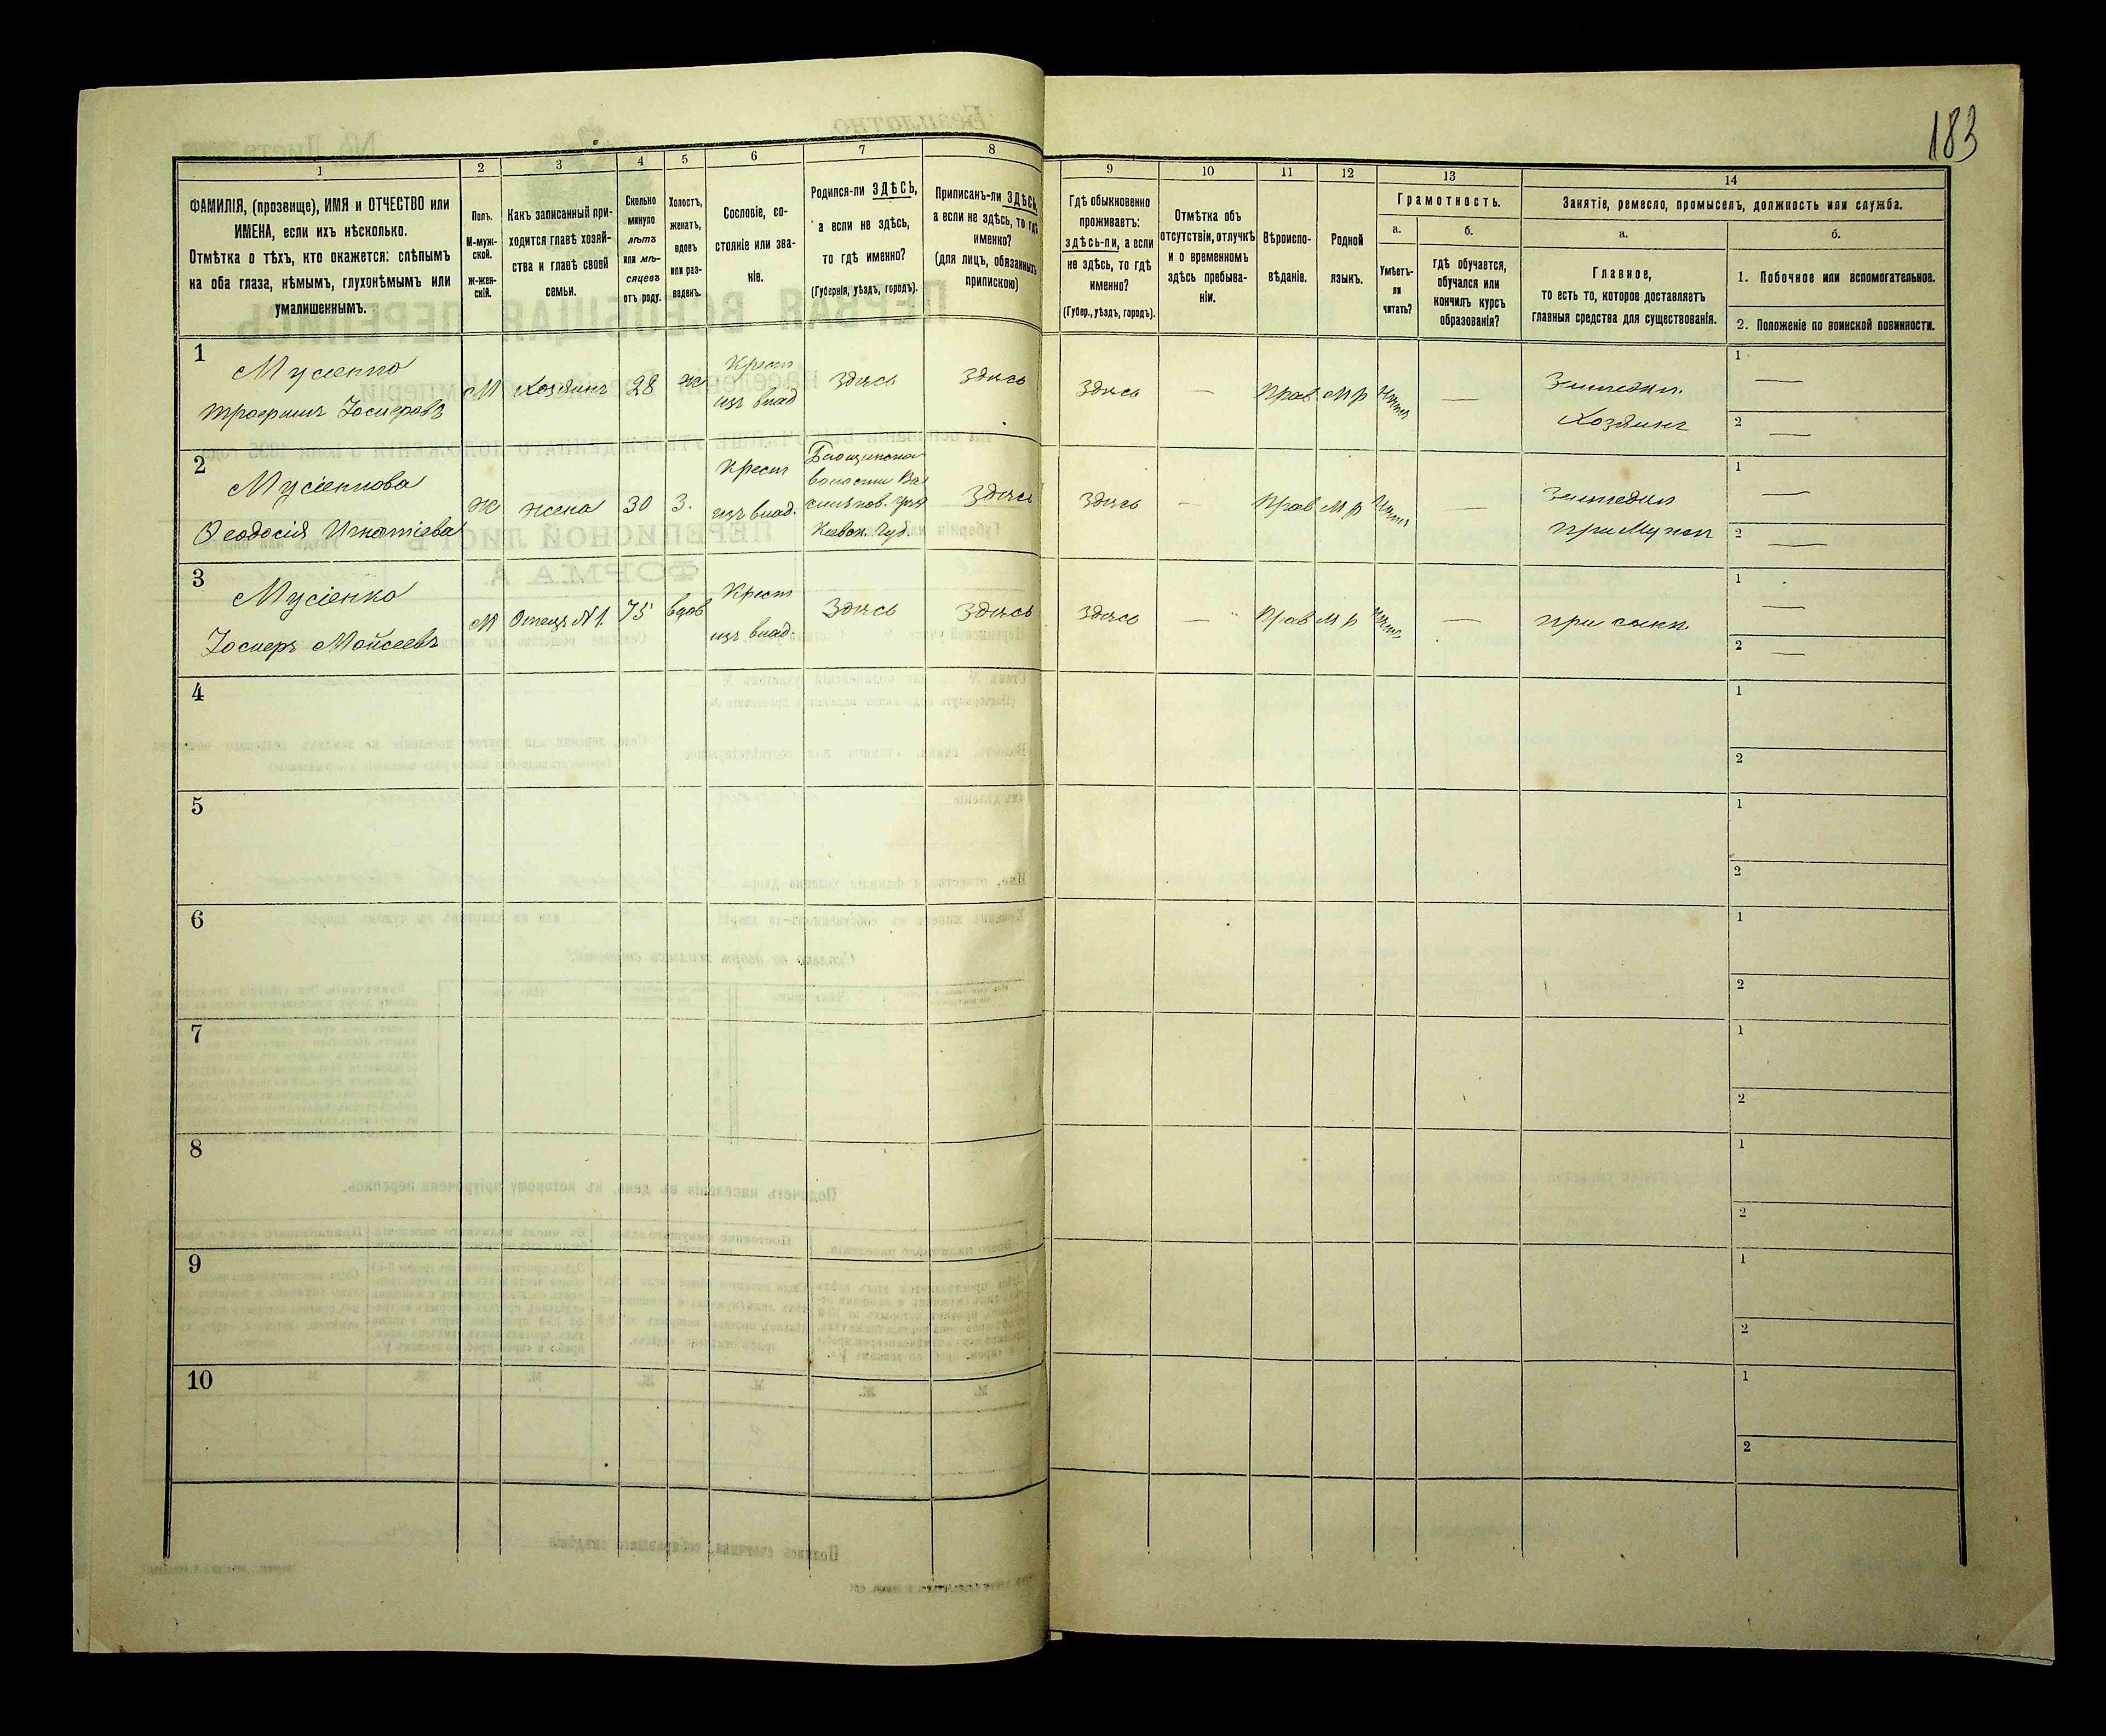 183
1
2
3
4
5
6
7
8
9
10
11
12
13
14
ФАМИЛІЯ, (прозвище), ИМЯ и ОТЧЕСТВО или
ИМЕНА, если ихъ нѣсколько.
Отмѣтка о тѣхъ, кто окажется: слѣпымъ
на оба глаза, нѣмымъ, глухонѣмымъ или
умалишеннымъ.
Полъ.
М-муж-
ской.
ж-жен-
скій.
Какъ записанный при-
ходится главѣ хозяй-
ства и главѣ своей
семьи.
Сколько
минуло
лѣтъ
или мѣ-
сяцевъ
отъ роду.
Холостъ,
женатъ,
вдовъ
или раз-
веденъ.
Сословіе, со-
стояніе или зва-
ніе.
Родился-ли ЗДѢСЬ,
а если не здѣсь,
то гдѣ именно?
(Губернія, уѣздъ, городъ).
Приписанъ-ли ЗДѢСЬ,
а если не здѣсь, то гдѣ
именно?
(для лицъ, обязанныхъ
припискою)
Гдѣ обыкновенно
проживаетъ:
здѣсь-ли, а если
не здѣсь, то гдѣ
именно?
(Губер., уѣздъ, городъ).
Отмѣтка объ
отсутствіи, отлучкѣ
и о временномъ
здѣсь пребыва-
ніи.
Вѣроиспо-
вѣданіе.
Родной
языкъ.
Грамотность.
а.
Умѣетъ-
ли
читать?
б.
гдѣ обучается,
обучался или
кончилъ курсъ
образованія?
Занятіе, ремесло, промыселъ, должность или служба.
а.
Главное,
то есть то, которое доставляетъ
главныя средства для существованія.
б.
1. Побочное или вспомогательное.
2. Положеніе по воинской повинности.
1
Мусіенко
Трофимъ Іосифовъ
М Хозяинъ 28 ж
Крест
изъ влад
Здѣсь Здѣсь Здѣсь — Прав М р —
Хозяинъ
1 —
2 —
2
Мусіенкова
Ѳеодосія Игнатіева
ж жена 30 З.
Крест
изъ влад.
волости
Кіевск. Губ.
Здѣсь Здѣсь — Прав М р —
1 —
2 —
3
Мусіенко
Іосифъ Мойсеевъ
М Отецъ №1. 75 вдов
Крест
изъ влад.
Здѣсь Здѣсь Здѣсь — Прав М р —
при сынѣ
1 —
2 —
4
1
2
5
1
2
6
1
2
7
1
2
8
1
2
9
1
2
10
1
2